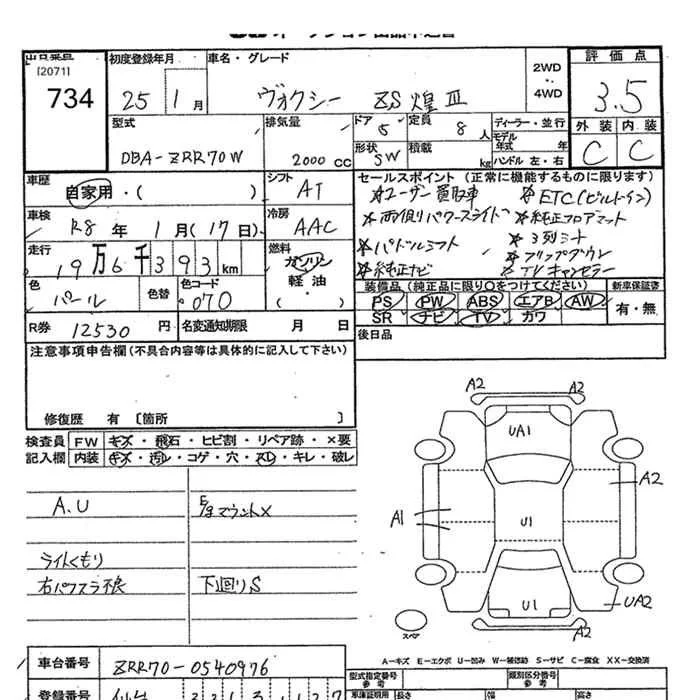 [2071]
734
初度登録年月
25 1月
車名・グレード
ヴォクシー ZS煌Ⅲ
2WD
4WD
評価点
3.5
外装 内装
C C
型式
DBA-ZRR70W
排気量
2000 CC
ドア 5
定員 8人
形状 SW
積載 kg
ディーラー・並行
モデル年式 年
ハンドル 左・右
車歴
自家用・( )
シフト
AT
セールスポイント (正常に機能するものに限ります)
*ユーザー買取車 *ETC(ビルトイン)
*両側パワースライド *純正フロアマット
*パドルシフト *3列シート
*純正ナビ *フリップダウン
*TVキャンセラー
車検
R8年 1月(17日)
冷房
AAC
走行
19万6千393km
燃料
ガソリン
軽油
( )
色
パール
色替
色コード
070
装備品 (純正品に限り○をつけてください)
新車保証書
PS PW ABS エアB AW
SR ナビ TV カワ
有・無
R券 12530円
名変通知期限 月 日
後日品
注意事項申告欄(不具合内容等は具体的に記入して下さい)
修復歴 有 [箇所 ]
検査員記入欄
FW キズ・飛石・ヒビ割・リペア跡・×要
内装 キズ・汚レ・コゲ・穴・スレ・キレ・破レ
A.U
E/gマウント×
ライトくもり
右パワスラ不良
下回りS
A2 A2
UA1
A2
A1
U1
U1
UA2
スペア
A-キズ E-エクボ U-凹み W-補修跡 S-サビ C-腐食 XX-交換済
車台番号 ZRR70-0540976
型式指定番号 参考
類別区分番号 参考
登録番号 仙台
車庫証明用 長さ 幅 高さ